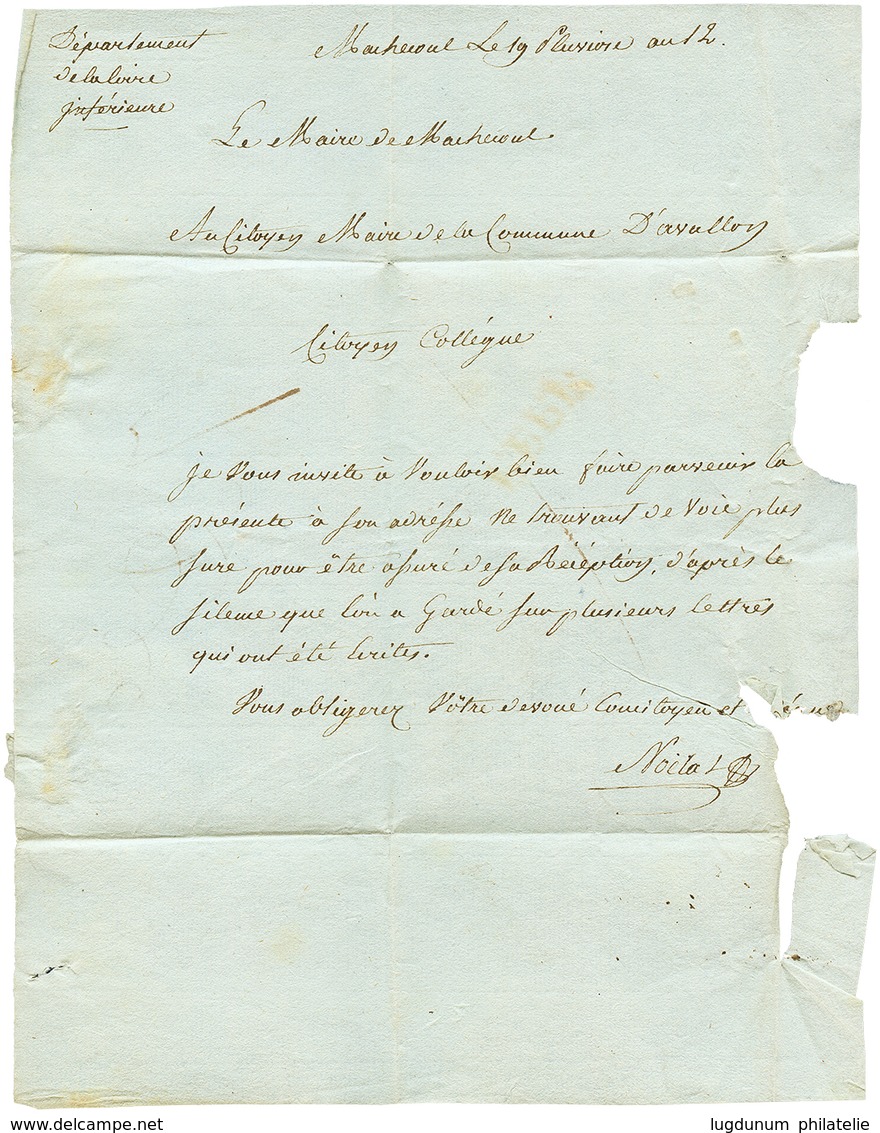 Département
de la loire
jnférieure
Machecoul Le 19 Pluviose an 12.
Le Maire de Machecoul
Au Citoyen Maire de la Commune D'avallon
Citoyen Collégue
je Vous invite à Vouloir bien faire parvenir la
présente à son adrésse Ne trouvant de Voie plus
sure pour être assuré de sa Réception, d'après le
silence que l'on a Gardé sur plusieurs lettres
qui ont été Ecrites.
Vous obligerez Vôtre devoué Concitoyen et
Noilat
delcampe.net
lugdunum philatelie